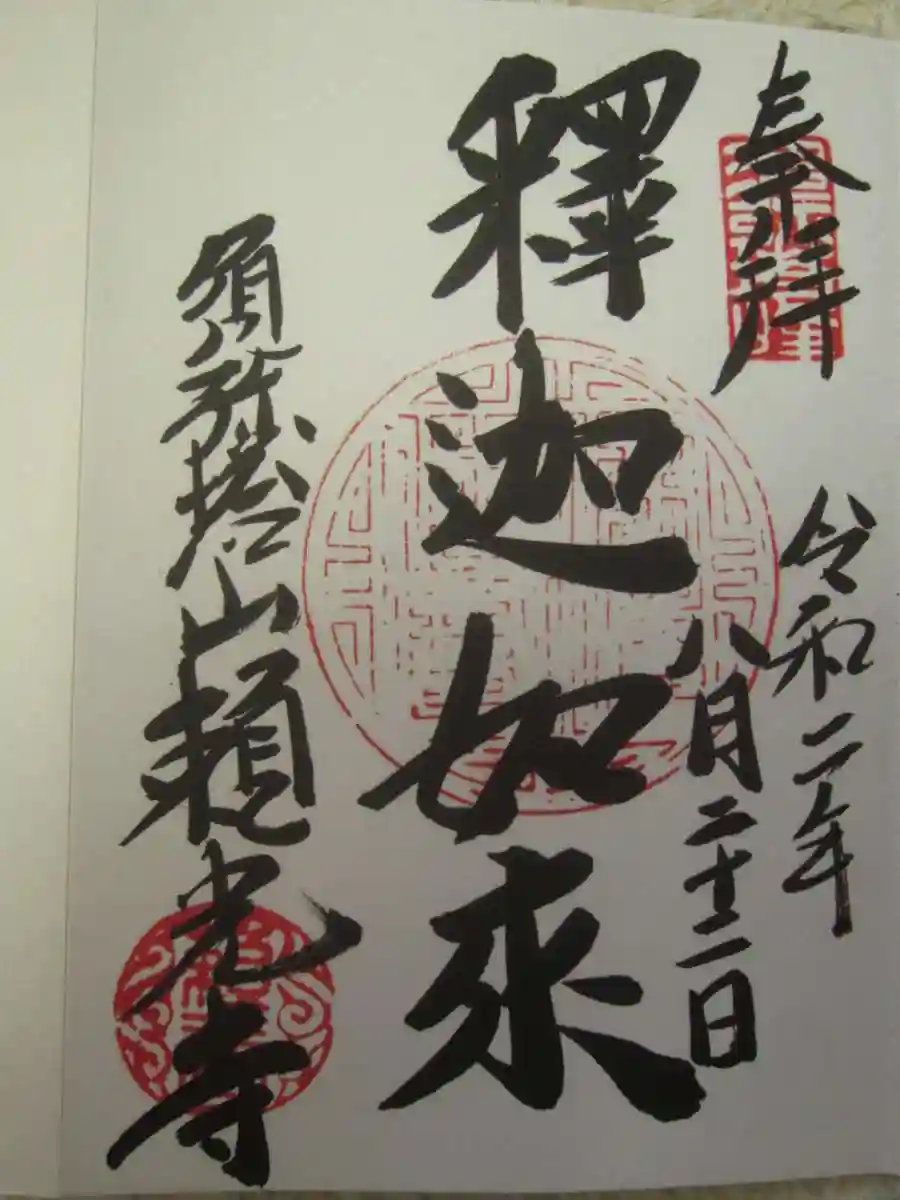 奉拝
令和二年
八月二十二日
釋迦如来
須弥塔山頼光寺